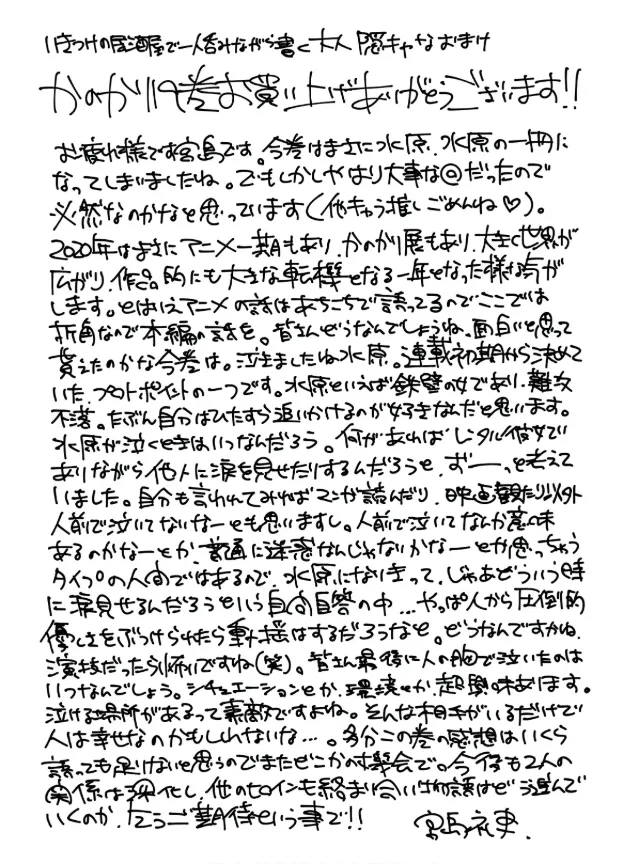 いきつけの居酒屋で一人呑みながら書く大人隠キャなおまけ
かのかり19巻お買い上げありがとうございます!!
お疲れ様です宮島です。今巻はまさに水原、水原の一冊に
なってしまいましたね。でもしかしやはり大事な◎だったので
必然なのかなと思っています(他キャラ推しごめんね♡)。
2020年はまさにアニメ一期もあり、かのかり展もあり、大きく世界が
広がり、作品的にも大きな転機となる一年となった様な気が
します。とはいえアニメの話はあちこちで語ってるのでここでは
折角なので本編の話を。皆さんどうなんでしょうね、面白いと思って
貰えたのかな今巻は。泣きましたね水原。連載初期から決めて
いた、プロットポイントの一つです。水原といえば鉄壁の女であり、難攻
不落。たぶん自分はひたすら追いかけるのが好きなんだと思います。
水原が泣くときはいつなんだろう。何があればレンタル彼女で
ありながら他人に涙を見せたりするんだろうと、ずーーっと考えて
いました。自分も言われてみればマンガ読んだり、映画観たり以外
人前で泣いてないなーとも思いますし。人前で泣いてなんか意味
あるのかなーとか、普通に迷惑なんじゃないかなーとか思っちゃう
タイプの人間ではあるので、水原になりきって、じゃあどういう時
に涙見せるんだろうという自問自答の中…やっぱ人から圧倒的
優しさをぶつけられたら動揺はするだろうなと。どうなんですかね、
演技だったら怖いですね(笑)。皆さん最後に人の胸で泣いたのは
いつなんでしょう。シチュエーションとか、環境とか、超興味あります。
泣ける場所があるって素敵ですよね。そんな相手がいるだけで
人は幸せなのかもしれないな…。多分この巻の感想はいくら
語っても足りないと思うのでまたどこかの機会で。今後も2人の
関係は深化し、他のヒロインも絡まり合い物語はどう進んで
いくのか、乞うご期待という事で!!　宮島礼吏.